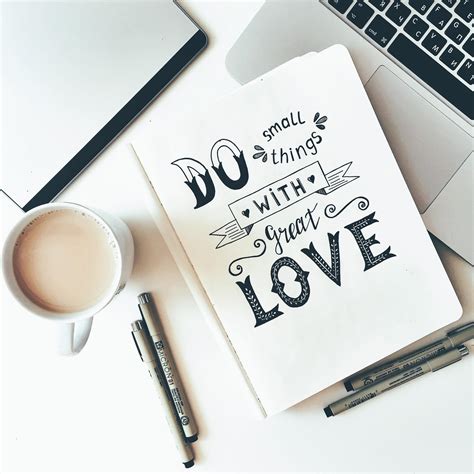 DO
small
things
WITH
great
LOVE